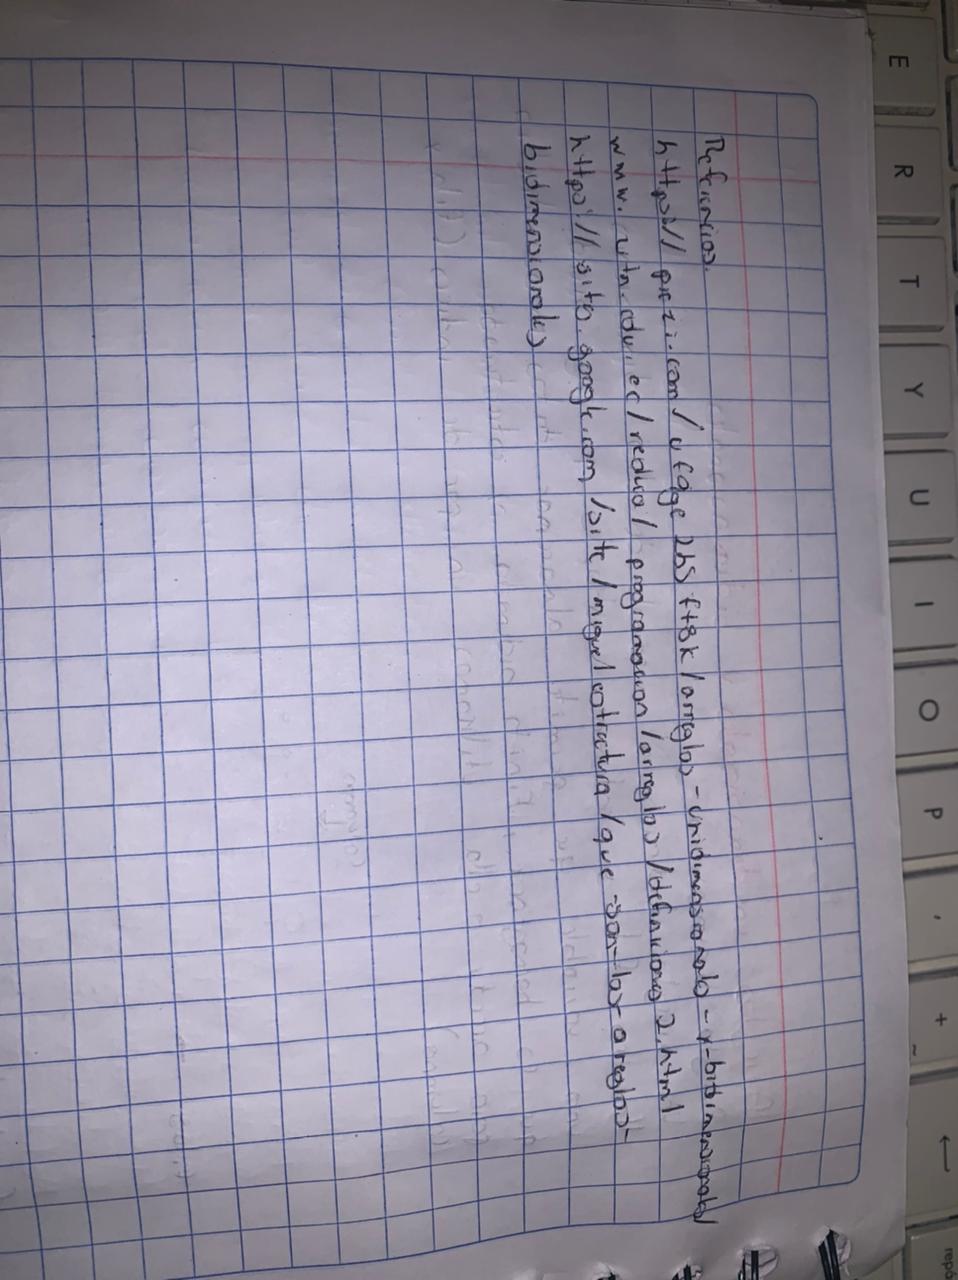 Referencias.
https:// prezi.com/ufqge 2h5 ft8k /arreglos - unidimensionales - y-bidimensionales/
www. utn.edu.ec/reduca/ programacion /arreglos /definiciones 2.html
https://sites.google.com /site/miguel estructura /que-son-los-areglos-
bidimensionales
E R T Y U I O P
+
~